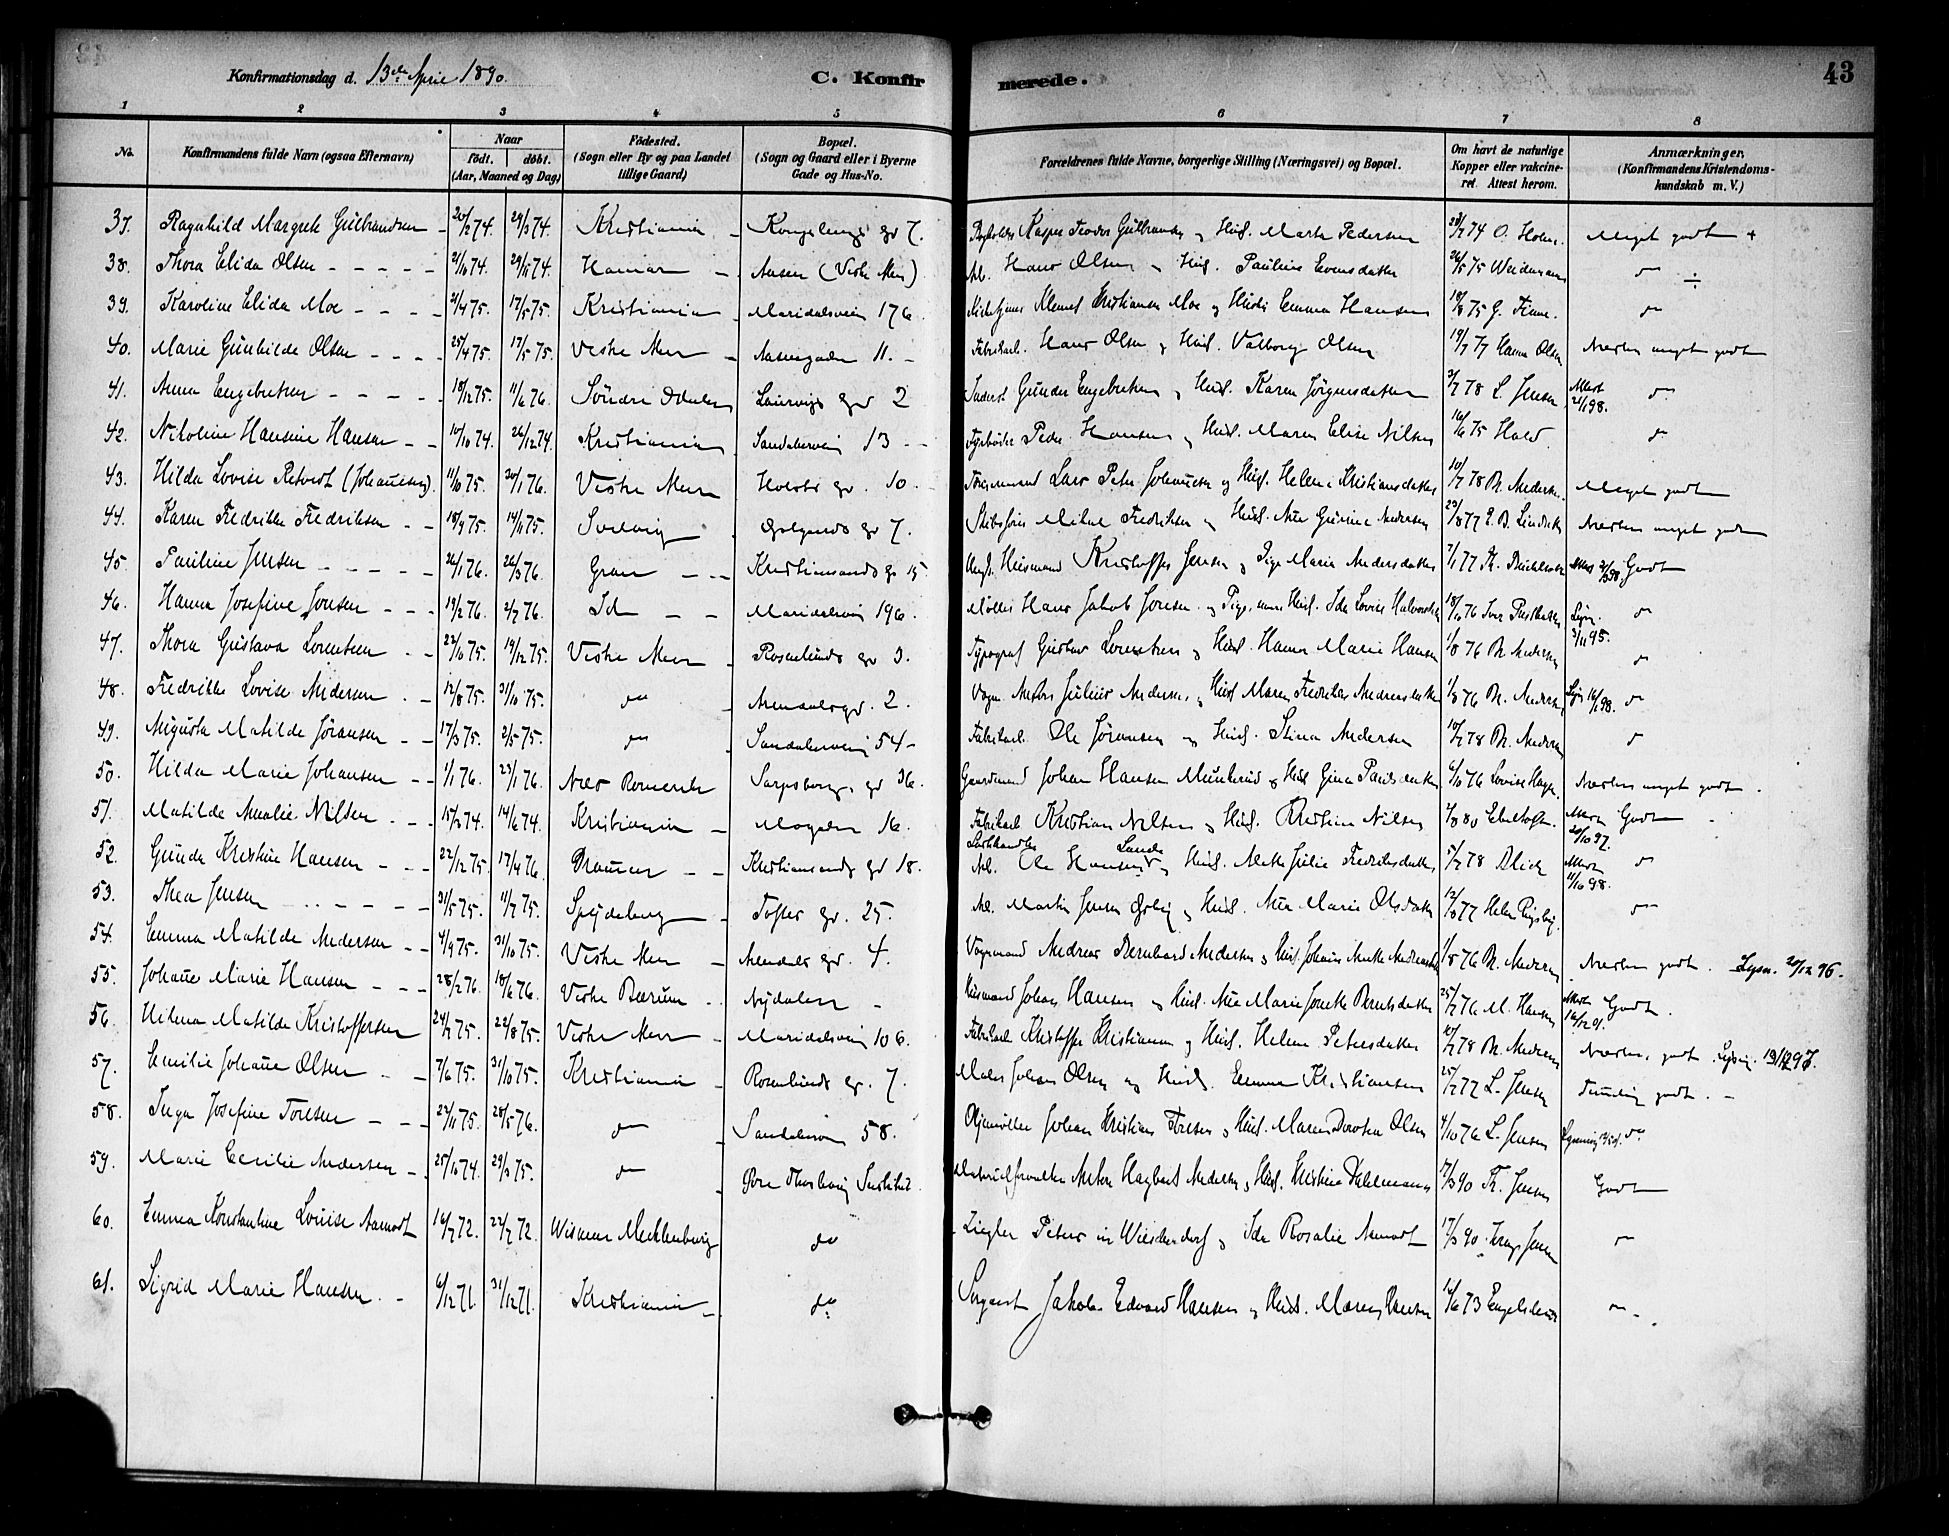 Konfirmationsdag d. 13de April 1890. C. Konfirmerede. 43
1 2 3 4 5 6 7 8
No. Konfirmandens fulde Navn (ogsaa Efternavn) Naar födt. döbt. (Aar, Maaned og Dag) Födested. (Sogn eller By og paa Landet tillige Gaard) Bopæl. (Sogn og Gaard eller i Byerne Gade og Hus-No. Forældrenes fulde Navne, borgerlige Stilling (Næringsvei) og Bopæl. Om havt de naturlige Kopper eller vakcineret. Attest herom. Anmærkninger, (Konfirmandens Kristendomskundskab m. V.)
37. Ragnhild Margrete Gulbrandsen 20/2 74. 29/3 74. Kristiania Kongsbergs gd 7. Kasper Teodor Gulbrandsen og Hust. Marte Pedersen 74 O. Holm. Meget godt +
38. Thora Elida Olsen 21/10 74. 29/11 74. Hamar Aasen (Vestre Aker) Arb. Hans Olsen og Hust. Pauline Evensdatter 26/5 75 Weidemann do ÷
39. Karoline Elida Moe 21/4 75. 17/5 75. Kristiania Maridalsveien 176. Klemet Kristiansen Moe og Hust. Emma Hansen 75 G. Finne. do
40. Marie Gunhilde Olsen 25/4 75. 17/5 75. Vestre Aker Aasengaden 11. Fabrikarb. Hans Olsen og Hust. Valborg Olsen 19/7 77 Hanna Olsen Næsten meget godt
41. Anna Engebretsen 18/12 75. 11/6 76. Söndre Odalen Laurvigs gd 2 Gunder Engebretsen og Hust. Karen Jørgensdatter 2/7 78 L. Jensen Attest 21/1 98. do
42. Nikoline Hansine Hansen 10/10 74. 26/12 74. Kristiania Sandakerveien 13 Fyrböder Peder Hansen og Hust. Maren Elise Nilsen 16/6 75 Hald. do
43. Hilda Lovise Retvedt (Johannesen) 11/10 75. 30/1 76. Vestre Aker Holsts gd. 10. Formand Lars Peter Johannesen og Hust. Helene Kristiansdatter 10/7 78 Th. Andersen Meget godt
44. Karen Fredrikke Fredriksen 18/9 75. 14/11 75. Svelvig gd 7. Skibsförer Fredriksen og Hust. Ane Gurine Andersen 29/8 77 Næsten meget godt
45. Pauline Jensen 26/1 76. 26/3 76. Gran Kristiansands gd 15. Ungk. Husmand Kristoffer Jensen og Pige Marie Andersdatter 7/1 77 Godt
46. Hanna Josefine Jonsen 19/2 76. 2/7 76. Id Maridalsveien 196. Möller Hans Jakob Jonsen og Pige, nu Hust. Ida Lovise Halvorsdatter 18/10 76 Lysn. 3/11 95. do
47. Thora Gustava Lorentsen 22/10 75. 19/12 75. Vestre Aker Rosenlunds gd 3. Typograf Gustav Lorentsen og Hust. Hanna Marie Hansen 1/8 76 Th. Andersen do
48. Fredrikke Lovise Andersen 12/8 75. 31/10 75. do Arendals gd. 2. Vogm. Anders Julius Andersen og Hust. Maren Fredrikke Andreasdatter 1/8 76 Th. Andersen Lysn 16/1 98. do
49. Augusta Matilde Jöransen 17/3 75. 2/5 75. do Sandakerveien 54 Fabrikarb. Ole Jöransen og Hust. Stina Andersen 10/7 78 Th. Andersen do
50. Hilda Marie Johansen 1/1 76. 23/1 76. Næs Romerike Sarpsborgs gd 36. Gaardmand Johan Hansen Munkerud og Hust. Gina Paulsdatter 6/10 76 Lovise Hagen Næsten meget godt.
51. Matilde Amalie Nilsen 15/2 74. 14/6 74. Kristiania Mogaten 16. Fabrikarb. Kristian Nilsen og Hust. Kristine Nilsen 80 Attest 20/10 97. Godt
52. Gunda Kristine Hansen 22/12 75. 17/4 76. Kristiansands gd 18. Arb. Ole Hansen Lande og Hust. Mette Julie Fredriksdatter 5/7 78 Blich Attest 11/10 98. do
53. Thea Jensen 31/5 75. 11/7 75. Spydeberg Toftes gd. 25. Arb. Martin Jensen og Hust. Ane Marie Olsdatter 77 do
54. Emma Matilde Andersen 4/9 75. 31/10 75. Vestre Aker Arendals gd. 4. Vognmand Andreas Bernhard Andersen og Hust. Johanne Mette Andreasdatter 1/8 76 Th. Andersen Næsten godt. Lysn. 20/12 96.
55. Johanne Marie Hansen 28/2 76. 18/6 76. Vestre Bærum Nydalen Husmand Johan Hansen og Hust. Ane Marie Jonette Berntsdatter 25/7 76 M. Hansen Attest 16/12 01. Godt.
56. Hilma Matilde Kristoffersen 24/7 75. 22/8 75. Vestre Aker Maridalsveien 106. Fabrikarb. Kristoffer Kristiansen og Hust. Helene Petersdatter 10/7 78 Th. Andersen Næsten godt. Lysning. 13/12 97.
57. Emilie Johanne Olsen 7/6 75. 31/10 75. Kristiania Rosenlunds gd. 7. Maler Johan Olsen og Hust. Emma Kristiansen 25/7 77 L. Jensen Temmelig godt.
58. Inga Josefine Torsen 22/11 75. 28/5 76. do Sandakerveien 58. Oljemöller Johan Kristian Torsen og Hust. Maren Dorothea Olsen 4/10 76 L. Jensen Lysning do
59. Marie Cecilie Andersen 25/10 74. 29/3 75. do Göre Thorshaug Institut Materialforvalter Anton Hagbart Andersen og Hust. Kristine Dahlemann 17/3 90 Kr. Jensen Godt
60. Emma Konstantine Louise Aamodt 16/7 72. 22/7 72. Wismar Mecklenburg do Ziegler Peters in Wieschendorf og Ida Rosalie Aamodt 17/3 90 Jensen do
61. Sigrid Marie Hansen. 6/12 71. 31/12 71. Kristiania do Sergeant Jakob Edvard Hansen og Hust. Maren Hansen 16/6 73 do